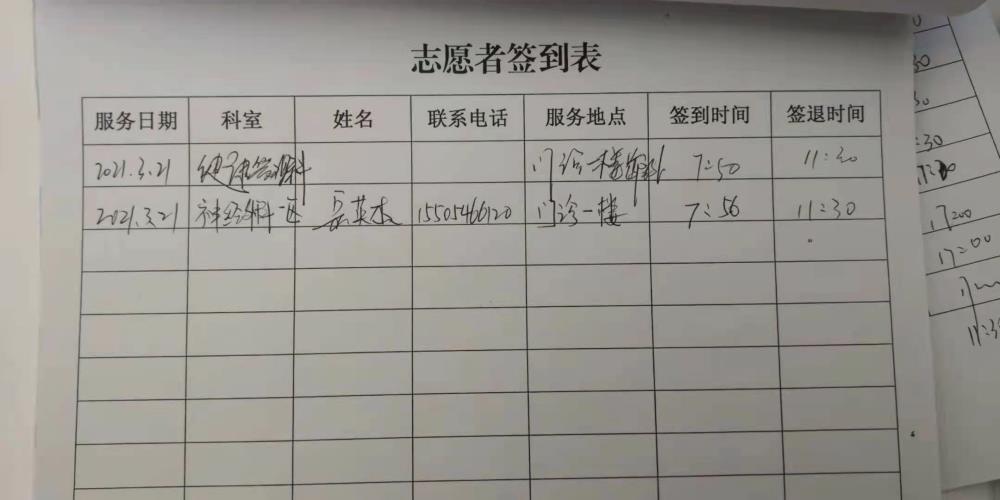 志愿者签到表
服务日期 科室 姓名 联系电话 服务地点 签到时间 签退时间
2021.3.21 健康管理科 门诊一楼 7:50 11:30
2021.3.21 神经内科一区 英杰 15505466120 门诊一楼 7:56 11:30
:30
17:00
17:00
11:3